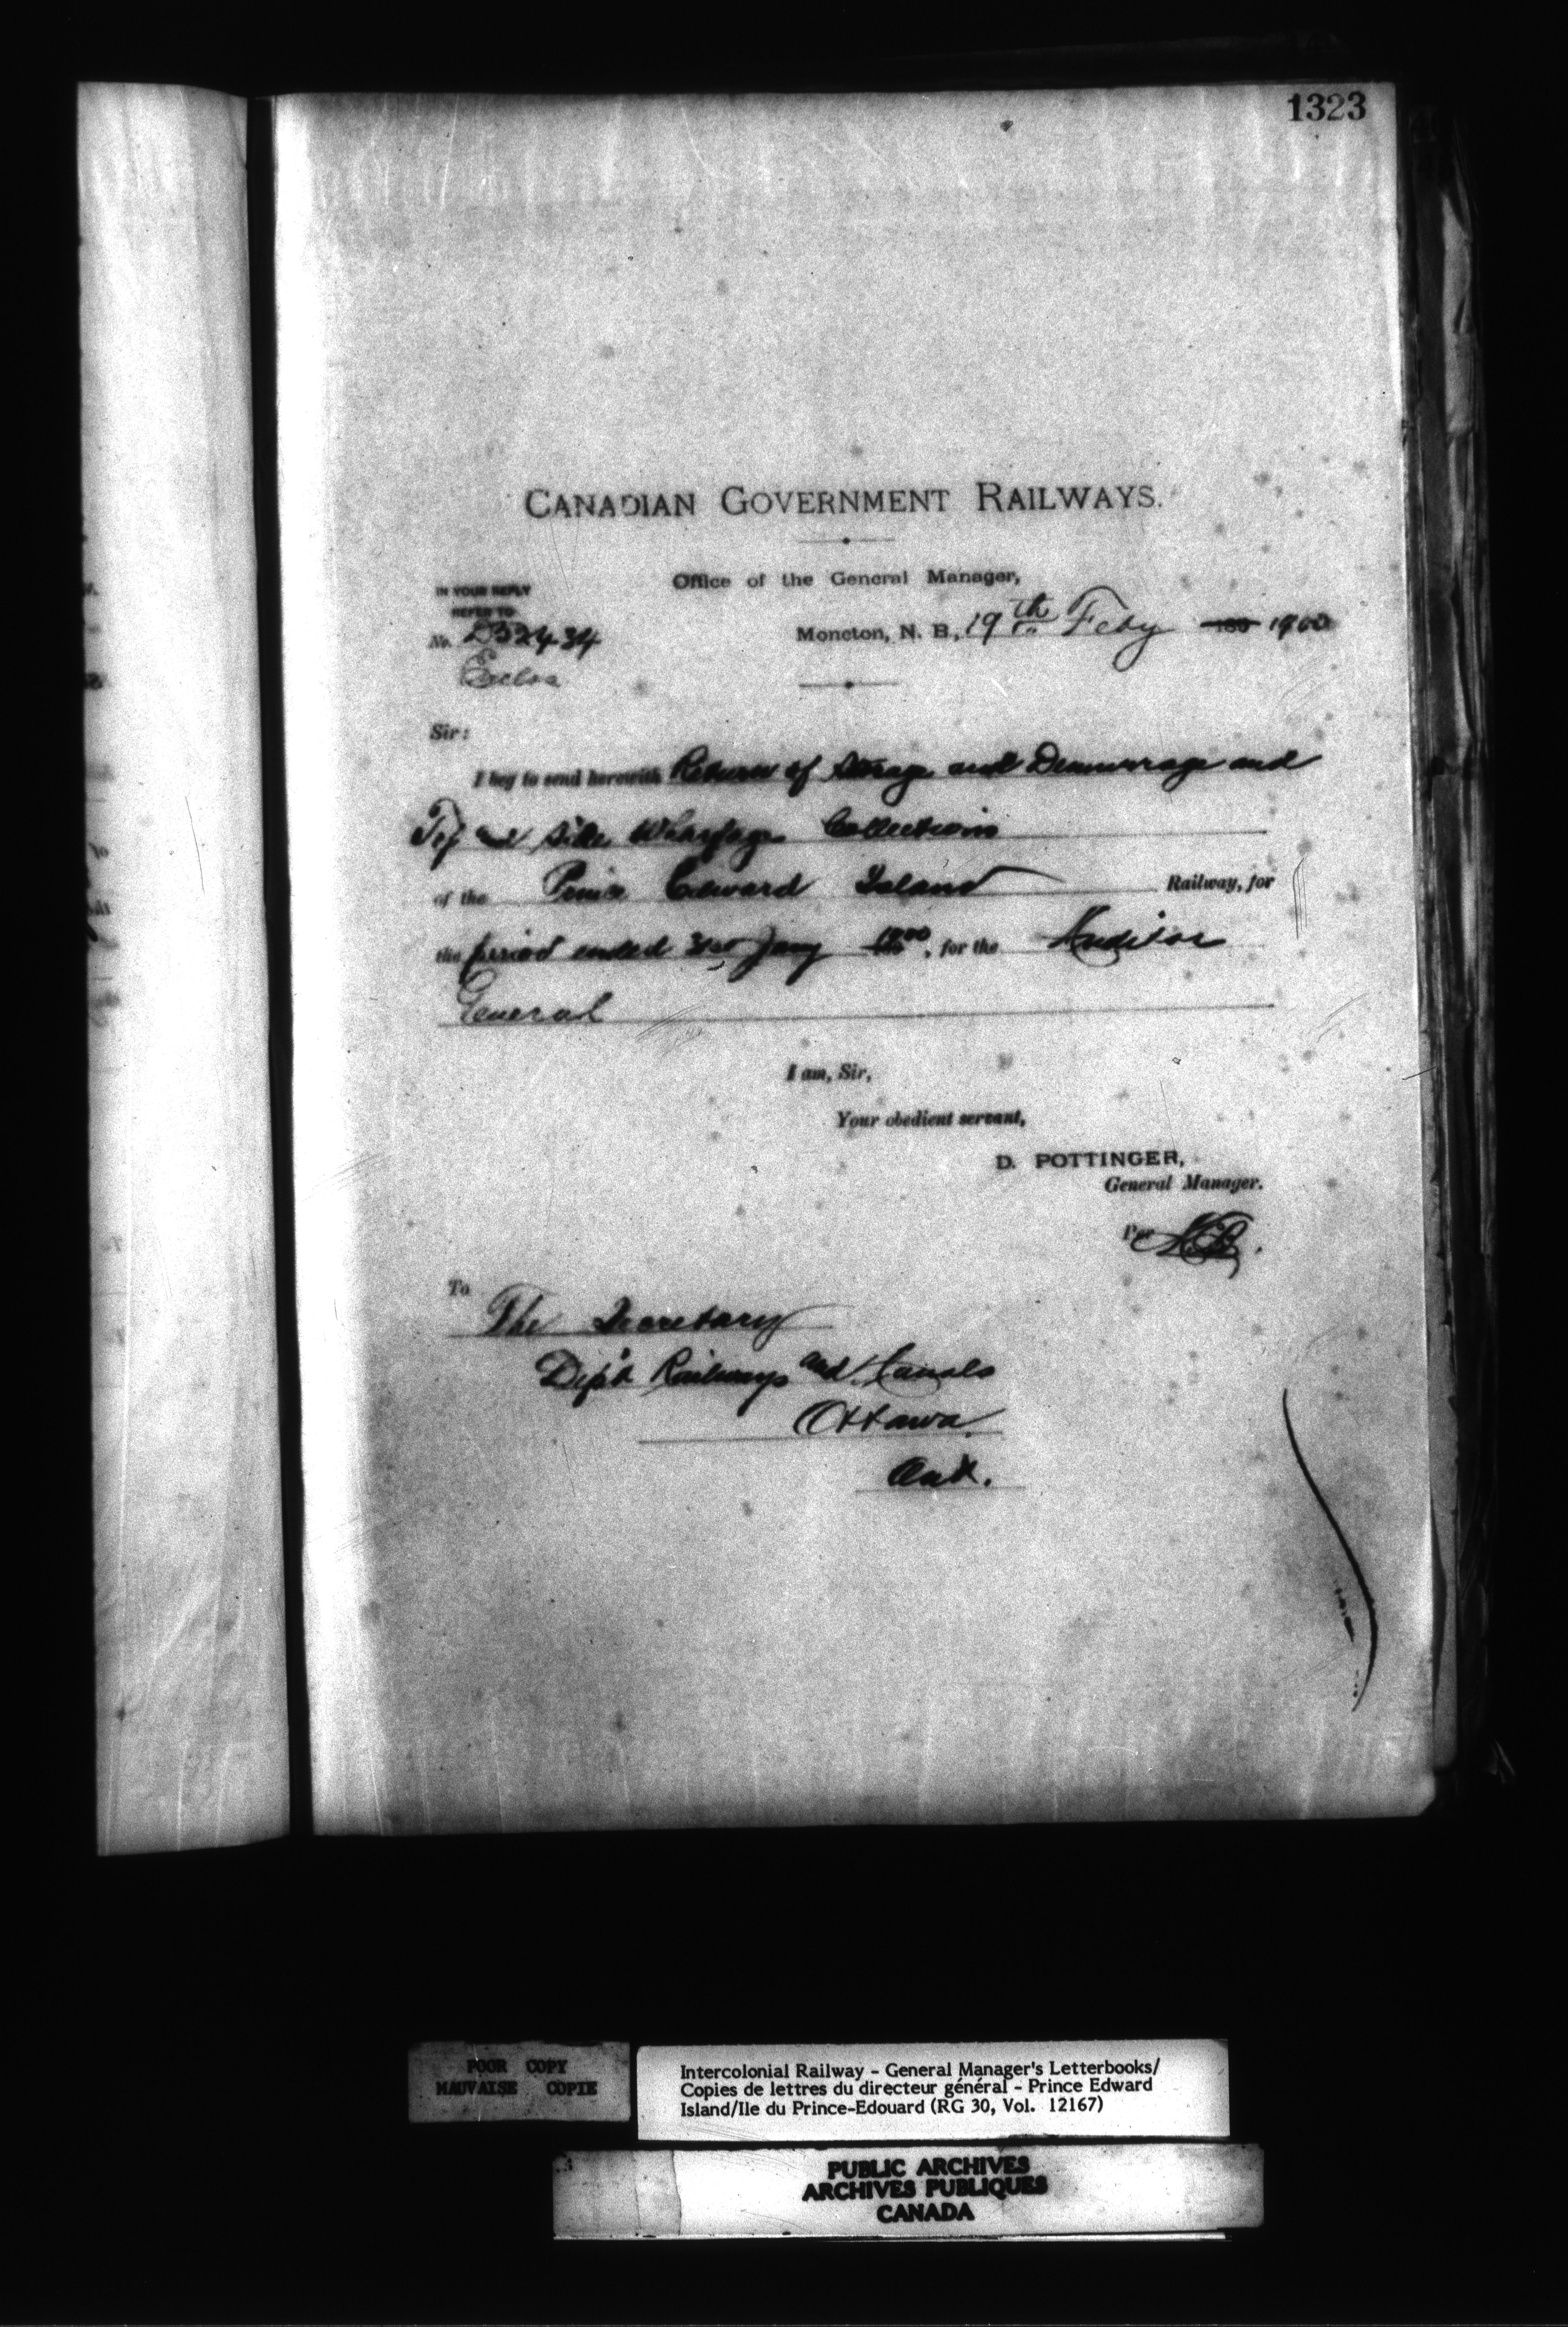 1323
CANADIAN GOVERNMENT RAILWAYS.
Office of the General Manager,
IN YOUR REPLY
REFER TO
No. 252434
Moncton, N. B., 19th Feby 189 1900
Enclos
Sir:
I beg to send herewith Return of Storage and Demurrage and
Top and Side Wharfage Collections
of the Prince Edward Island Railway, for
the period ended 31st Jany 1900, for the Auditor
General
I am, Sir,
Your obedient servant,
D. POTTINGER,
General Manager.
Per
To
The Secretary
Dep't Railways and Canals
Ottawa
Ont.
POOR COPY
MAUVAISE COPIE
Intercolonial Railway - General Manager's Letterbooks/
Copies de lettres du directeur général - Prince Edward
Island/Ile du Prince-Edouard (RG 30, Vol. 12167)
PUBLIC ARCHIVES
ARCHIVES PUBLIQUES
CANADA